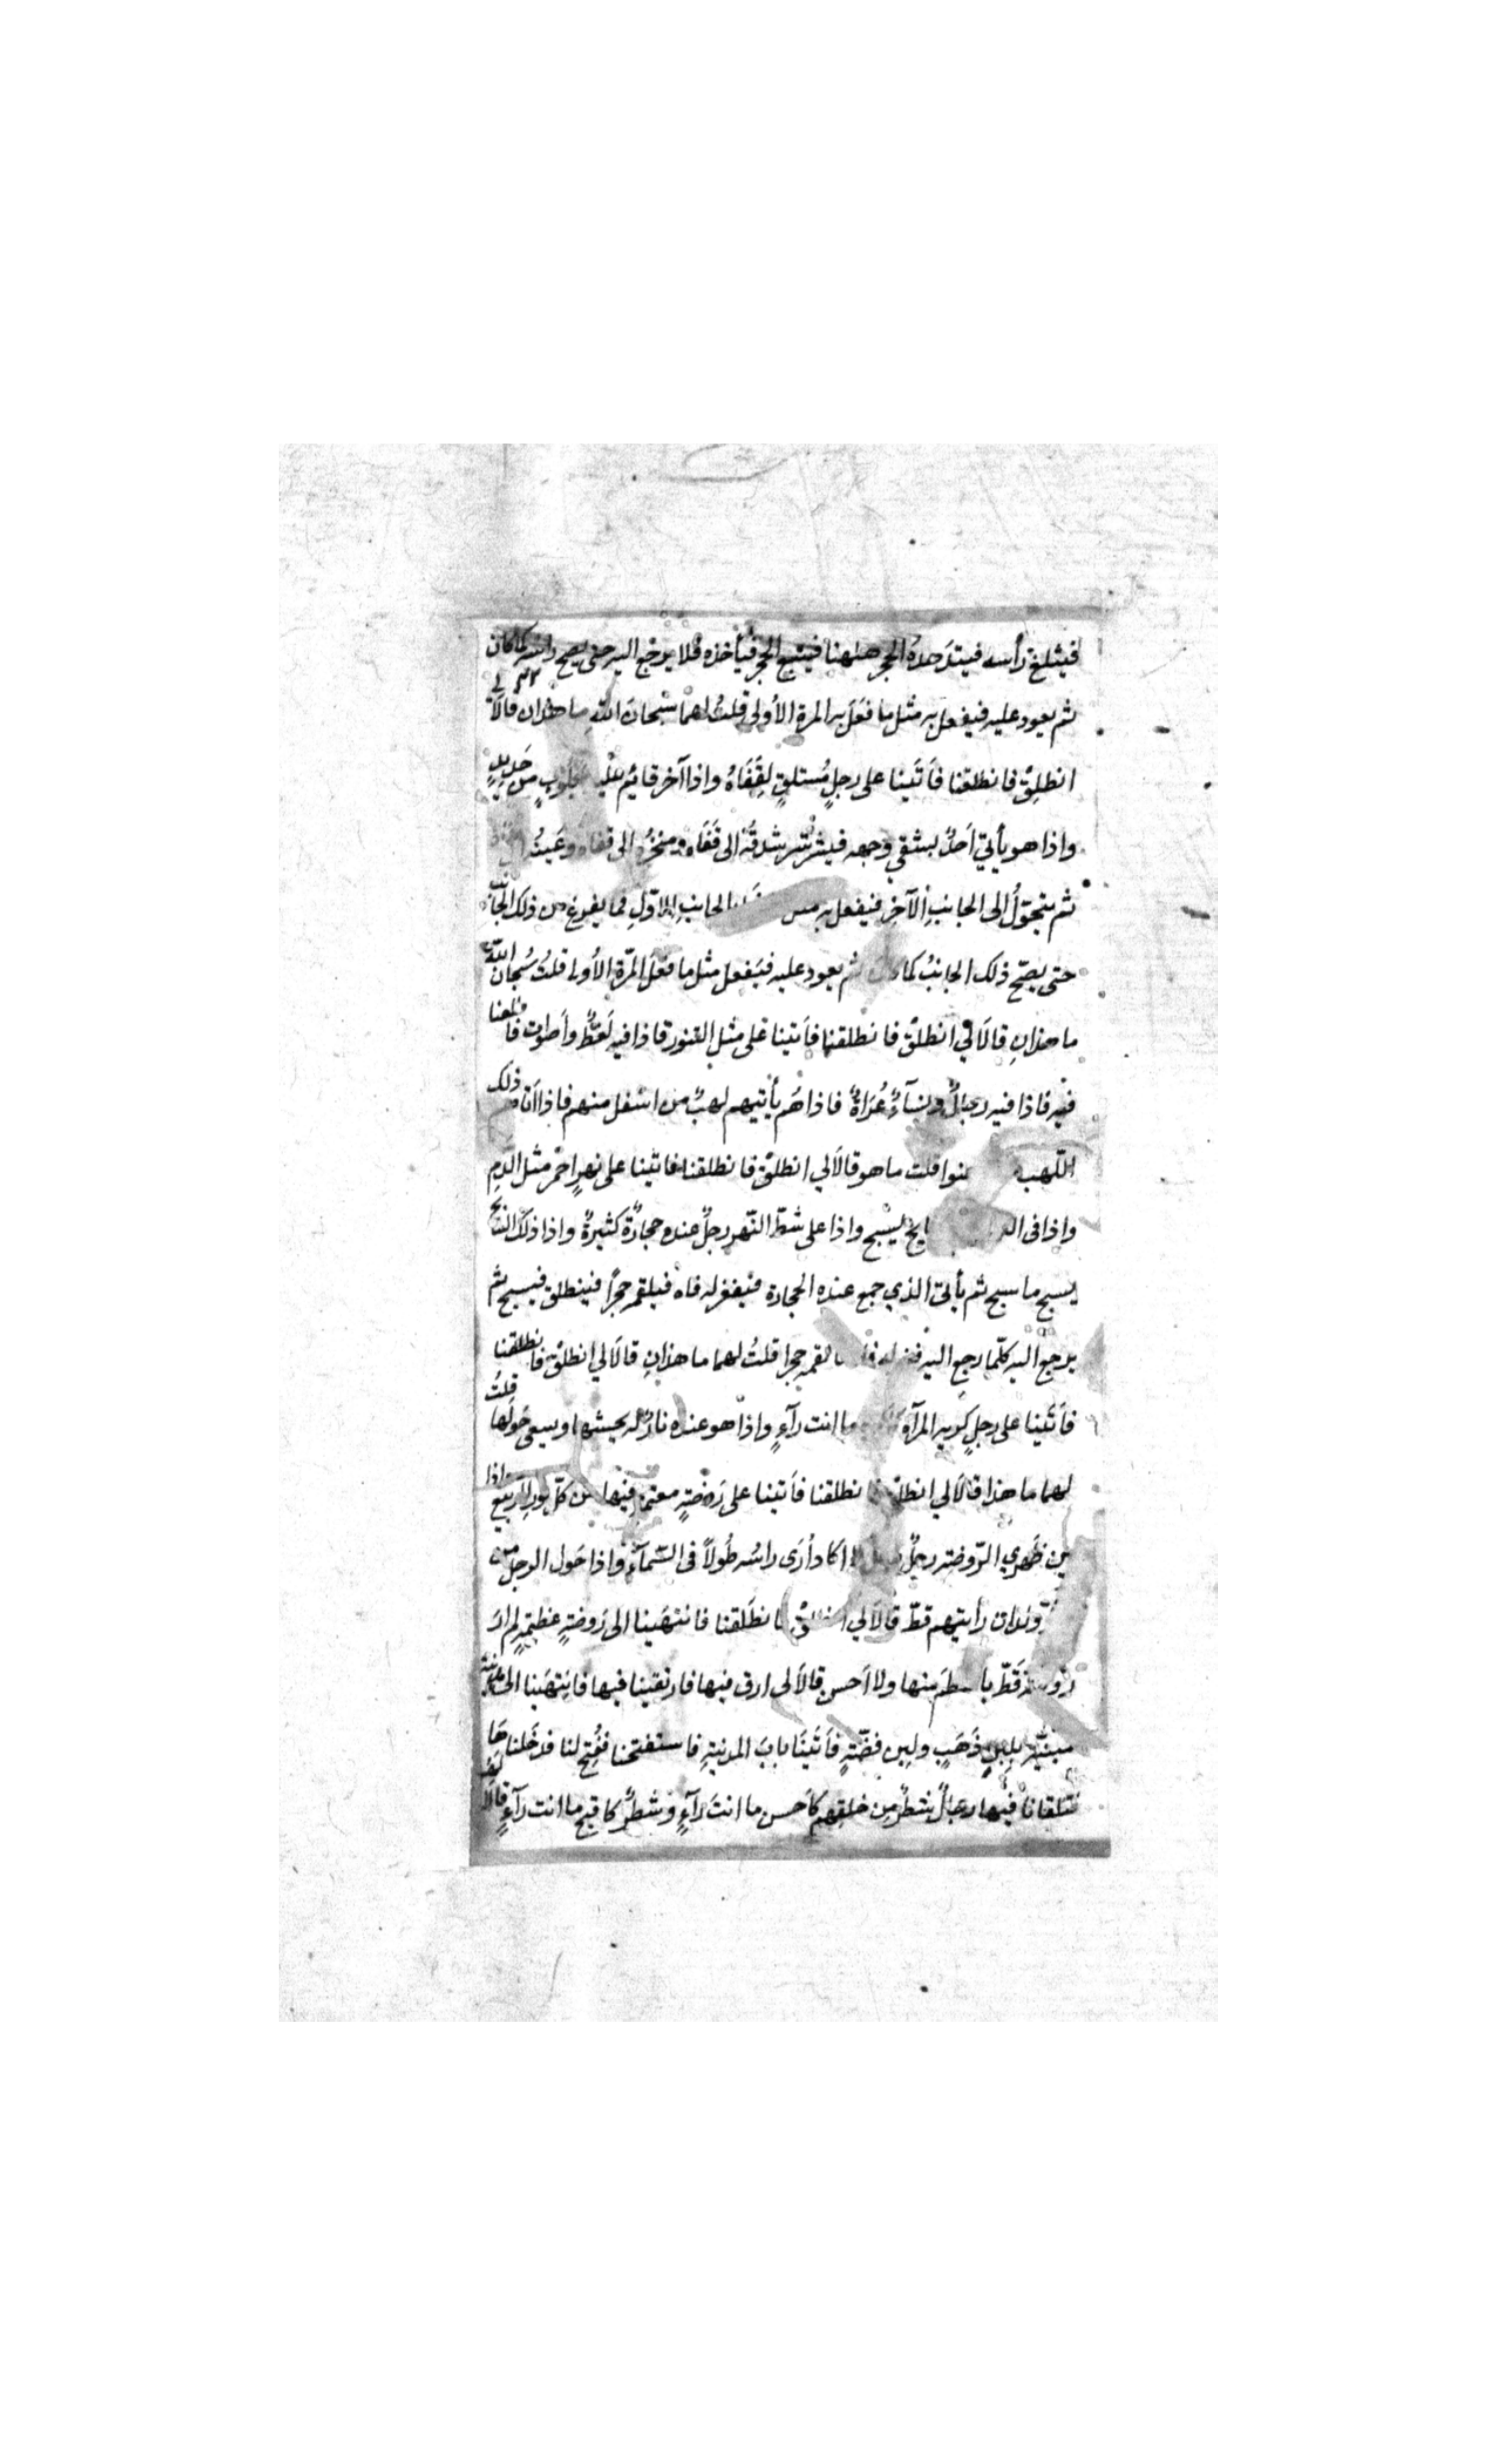 فيثلغ رأسه فيتدهده الحجر هاهنا فيتبع الحجر فيأخذه فلا يرجع اليه حتى يصح راسه كما كان
ثم يعود عليه فيفعل به مثل ما فَعَلَ به المرة الأولى قلتُ لهما سُبْحانَ اللهِ ما هذان قالَا لي
انطلِقْ فانطلقنا فَأَتَينا على رجلٍ مُستلقٍ لِقَفَاهُ واذا آخر قائم عليه بكلّوبٍ من حَدِيدٍ
واذا هو يأتي اَحدَ شقي وجهه فيشرشر شدقَه الى قَفَاه ومنخرُه الى قفاه وعَينُه
ثم يتحوّلُ الى الجانبِ الآخرِ فيفعل به بالجانبِ الاوّلِ فما يفرغ من ذلك الجانب
حتى يصحّ ذلك الجانبُ كما كان ثم يعود عليه فيَفعل مثل ما فعَلَ المرّة الأولى قلتُ سُبحان الله
ما هذانِ قالَا لي انطلقْ فانطلقنا فأَتينا على مثل التنور فاذا فيه لَغَطٌ وأَصوات فاطلعنا
فيه فاذا فيه رجالٌ ونِسَآءٌ عُرَاةٌ فاذا هُم يأتيهم لهبٌ من اسفل منهم فاذا أتاهم ذلك
اللّهب قلت ما هو قالَا لي انطلقْ فانطلقنا فاتينا على نهرٍ احمَر مثل الدّمِ
واذا فى يسْبح واذا على شطّ النّهر رجلٌ عنده حجارةٌ كثيرةٌ واذا ذلك السّابح
يسبح ما سبح ثم يأتى الذي جمع عنده الحجارة فيفغر له فاه فيلقمه حجرًا فينطلق فيسبح ثم
يرجع اليه كلّما رجع اليه فغر له فاه القمه حجرا قلتُ لهما ما هذانِ قالَا لي انطلقْ فانطلقنا
فأَتَينا على رجلٍ كريه المرآة ما انت رَآءٍ واذا هو عنده نارٌ له يحشها ويسعى حَولَها قلتُ
لهما ما هذا قالَا لي انطلقْ فانطلقنا فأَتينا على رَوضَةٍ معتمّة فيها من كلّ نور الرّبيع واذا
بين ظَهري الرّوضة رجلٌ طويلٌ لا اكاد أَرَى راسَه طُولاً فى السَّمآءِ واذا حَول الرجل من
وِلدان رأيتهم قطّ قالَا لي انطلقْ فانطَلَقنا فانتهَينا الى رَوضةٍ عظيمةٍ لم ارَ
روضة قَطّ منها ولا اَحسن قالَا لى ارق فيها فارتقينا فيها فانتهَينا الى مدينة
مبنيّة بلبِنِ ذَهَبٍ ولبِن فضّةٍ فأَتَينَا بابَ المدينةِ فاستفتحنا ففُتِحَ لنا فدخَلناهَا
فتلقانا فيها رجالٌ شطرٌ مِن خلقِهم كاَحسن ما انتَ رَآءٍ وشطرٌ كاقبح ما انت رَآءٍ قالَا